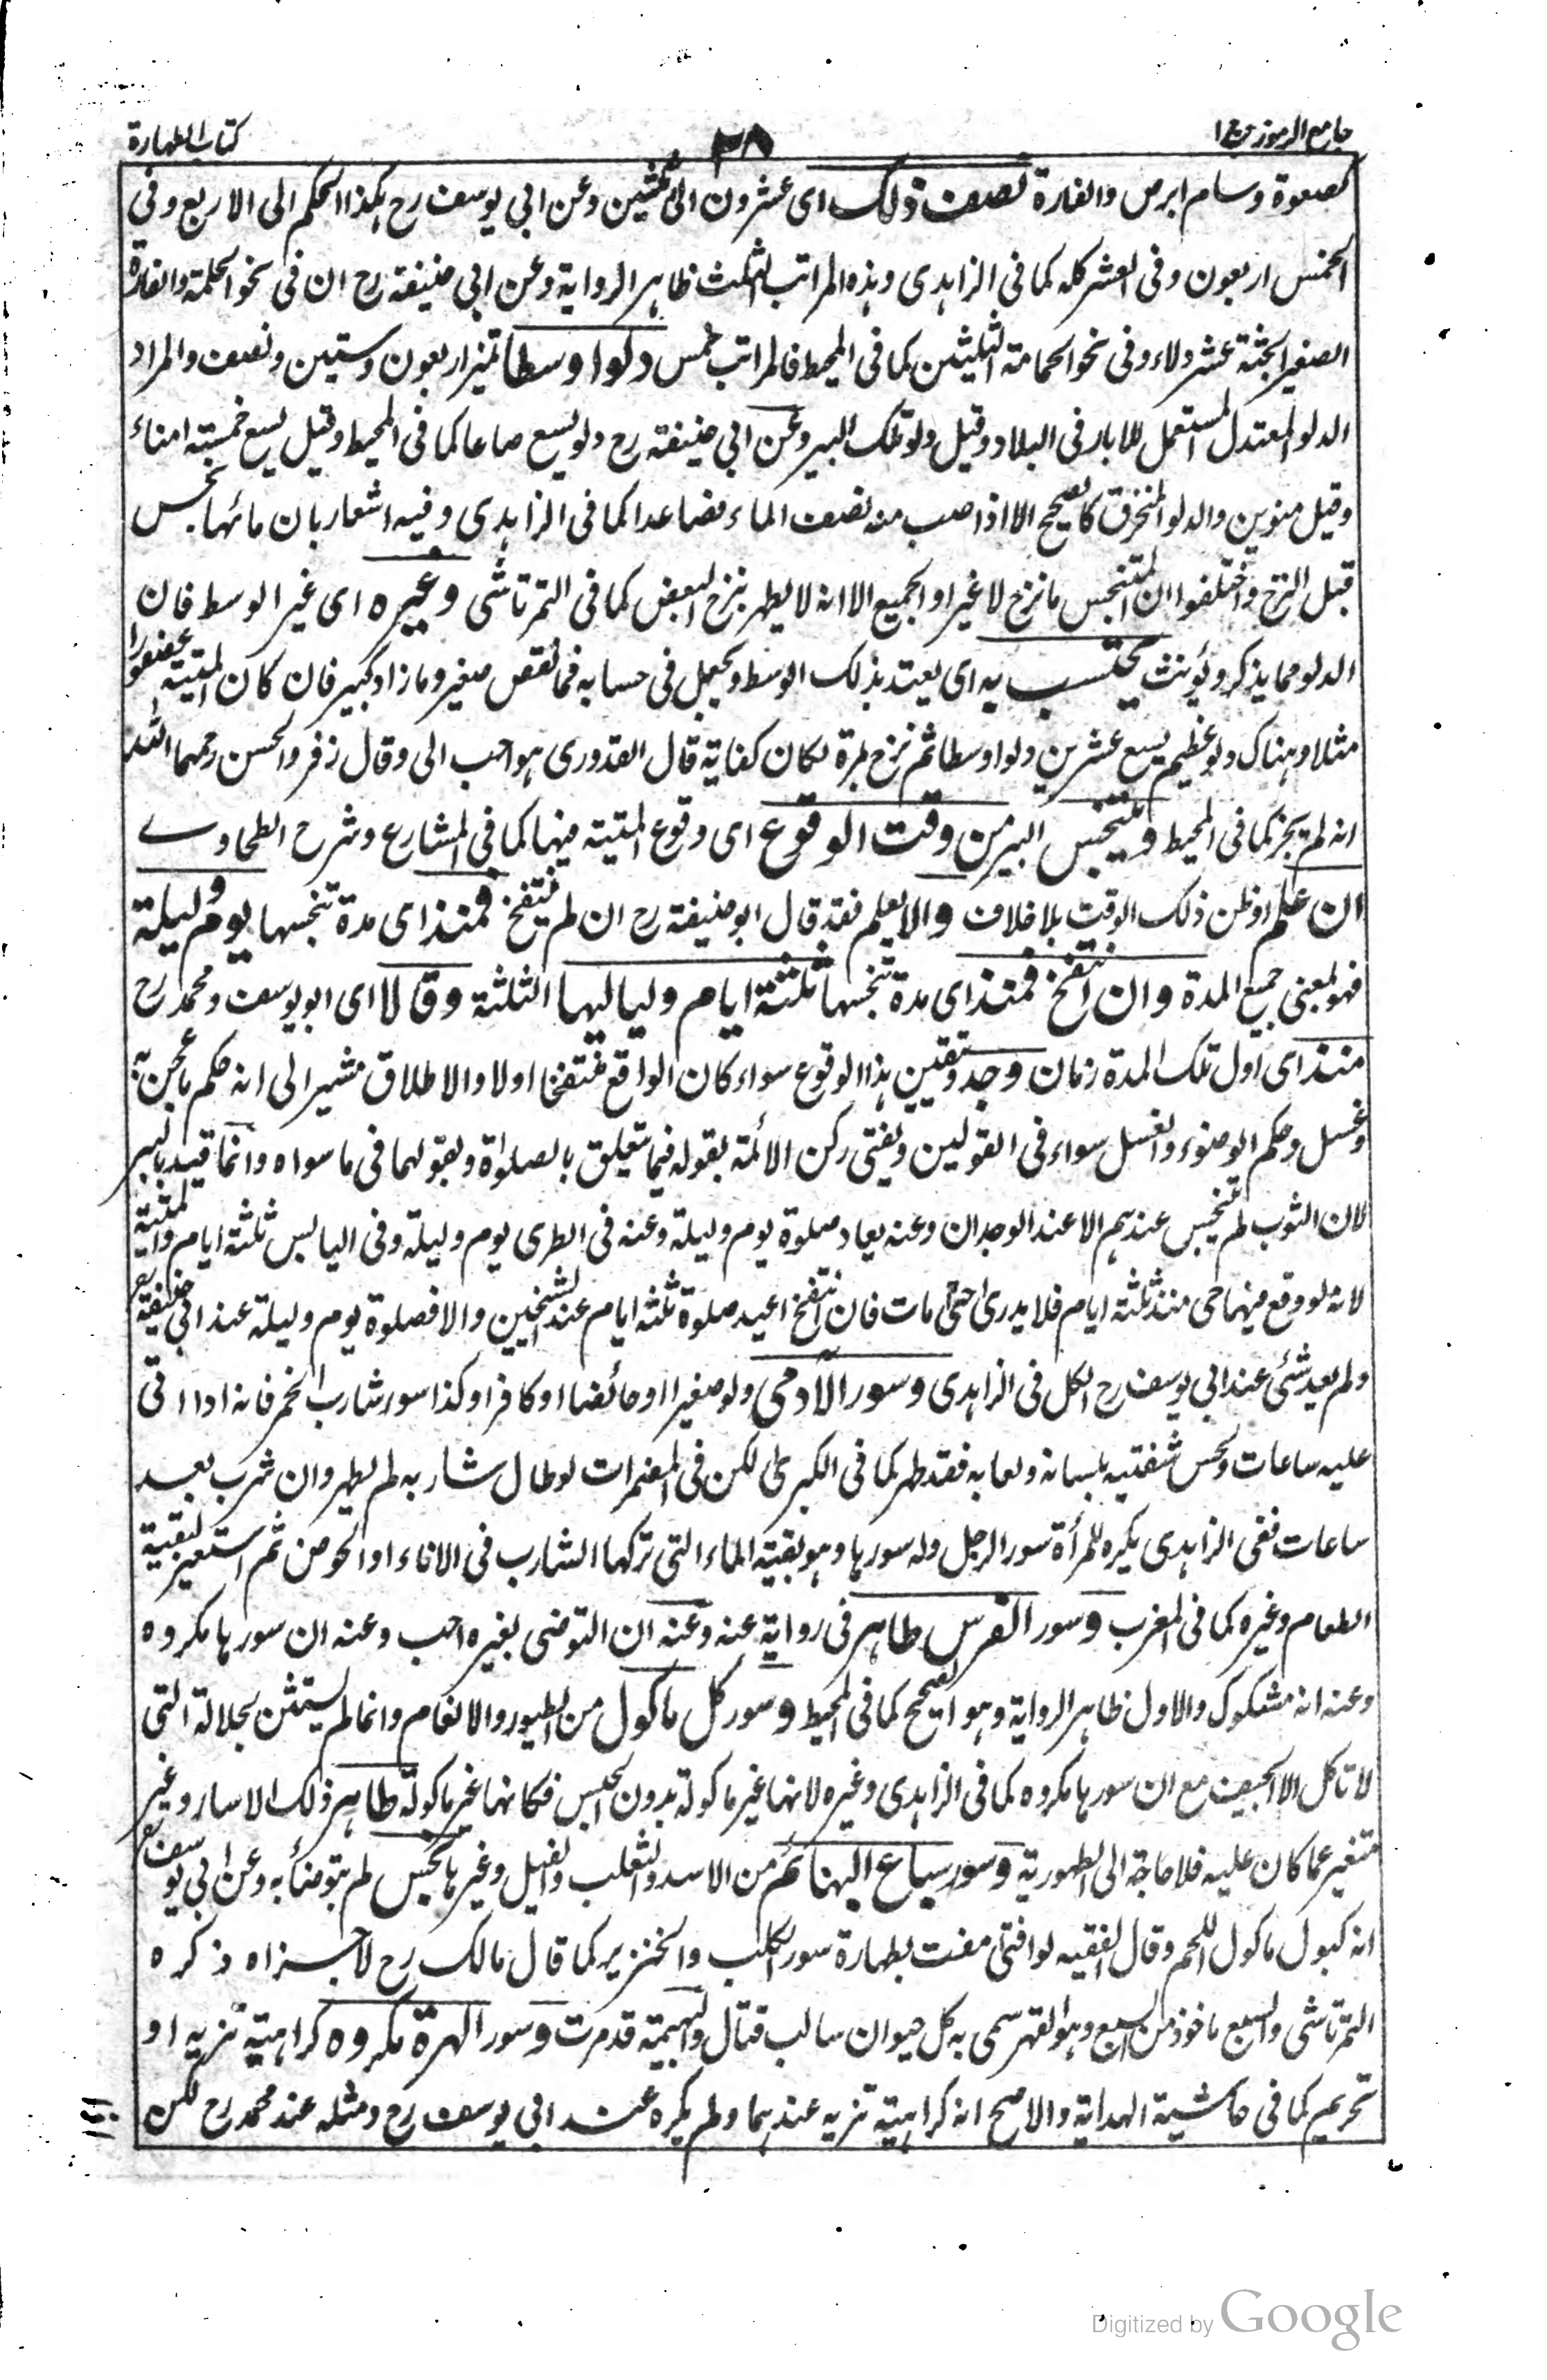 جامع الرموز ج ١
٣٨
كتاب الطهارة
كصعوة وسام ابرص والفارة نصف ذلك اى عشرون الى ثلثين وعن ابي يوسف رح هكذا الحكم الى الاربع وفى
الخمس اربعون وفى العشر كله كما فى الزاهدى وهذه المراتب الثلث ظاهر الرواية وعن ابي حنيفة رح ان فى نحو الحلمة والفارة
الصغير الجثة عشر دلاء وفى نحو الحمامة الثلثين كما فى المحيط فالمراتب خمس دلوا وسطا تميز اربعون وستين ونصف والمراد
الدلو المعتدل المستعمل للابار فى البلاد وقيل دلو تلك البير وعن ابي حنيفة رح دلو يسع صاعا كما فى المحيط وقيل يسع خمسة امناء
وقيل منوين والدلو المنخرق كالصحيح الا اذا صب منه نصف الماء فصاعدا كما فى الزاهدى وفيه اشعار بان مائها نجس
قبل النزح واختلفوا ان المتنجس ما نزح لا غير او الجميع الا انه لا يطهر بنزح البعض كما فى التمرتاشى وغيره اى غير الوسط فان
الدلو مما يذكر ويؤنث يحتسب به اى يعتد بذلك الوسط ويجعل فى حسابه فما نقص صغير وما زاد كبير فان كان الميتة عصفورا
مثلا وهناك دلو عظيم يسع عشرين دلوا وسطا ثم نزح مرة لكان كفاية قال القدورى هو احب الى وقال زفر والحسن رحمهما الله
انه لم يجز كما فى المحيط ويتنجس البير من وقت الوقوع اى وقوع الميتة فيها كما فى المشارع وشرح الطحاوے
ان علم او ظن ذلك الوقت بلا خلاف والا يعلم فقد قال ابو حنيفة رح ان لم ينتفخ فمنذ اى مدة تنجسها يوم وليلة
فهو لمعنى جميع المدة وان انتفخ فمنذ اى مدة تنجسها ثلثة ايام ولياليها الثلثة وقالا اى ابو يوسف ومحمد رح
منذ اى اول تلك المدة زمان وجد وتيقن هذا الوقوع سواء كان الواقع منتفخا اولا والاطلاق مشير الى انه حكم ما عجن به
وغسل وحكم الوضوء والغسل سواء فى القولين ويفتى ركن الائمة بقوله فيما يتعلق بالصلواة وبقولهما فى ما سواه وانما قيد بالبير
لان الثوب لم يتنجس عندهم الا عند الوجدان وعنه يعاد صلوة يوم وليلة وعنه فى الطرى يوم وليلة وفى اليابس ثلثة ايام والميتة
لانه لو وقع فيها حى منذ ثلثة ايام فلا يدرى متى مات فان انتفخ اعيد صلوة ثلثة ايام عند الشيخين والا فصلوة يوم وليلة عند ابي حنيفة رح
ولم يعد شئ عند ابي يوسف رح الكل فى الزاهدى وسور الآدمى ولو صغيرا او حائضا او كافرا وكذا سور شارب الخمر فانه اذا اتى
عليه ساعات ولحس شفتيه بلسانه ولعابه فقد طهر كما فى الكبرى لكن فى المضمرات لو طال شاربه لم يطهر وان شرب بعد
ساعات ففى الزاهدى يكره للمرأة سور الرجل وله سورها وهو بقية الماء التى تركها الشارب فى الاناء او الحوض ثم استعير لبقية
الطعام وغيره كما فى المغرب وسور الفرس طاهر فى رواية عنه وعنه ان التوضى بغيره احب وعنه ان سورها مكروه
وعنه انه مشكوك والاول ظاهر الرواية وهو الصحيح كما فى المحيط وسور كل ماكول من الطيور والانعام وانما لم يستثن الجلالة التى
لا تاكل الا الجيف مع ان سورها مكروه كما فى الزاهدى وغيره لانها غير ماكولة بدون الحبس فكانها غير ماكولة طاهر ذلك الاسار وغير
متغير عما كان عليه فلا حاجة الى الطهورية وسور سباع البهائم من الاسد والثعلب والفيل وغيرها نجس لم يتوضأ به وعن ابي يوسف رح
انه كبول ماكول اللحم وقال الفقيه لو افتى مفت بطهارة سور الكلب والخنزير كما قال مالك رح لاجزاه ذكره
التمرتاشى والسبع ماخوذ من السبع وهو القهر سمى به كل حيوان سالب قتال والبهيمة قد مرت وسور الهرة مكروه كراهية تنزيه او
تحريم كما فى حاشية الهداية والاصح انه كراهية تنزيه عندهما ولم يكره عند ابي يوسف رح ومثله عند محمد رح لكن
Digitized by Google